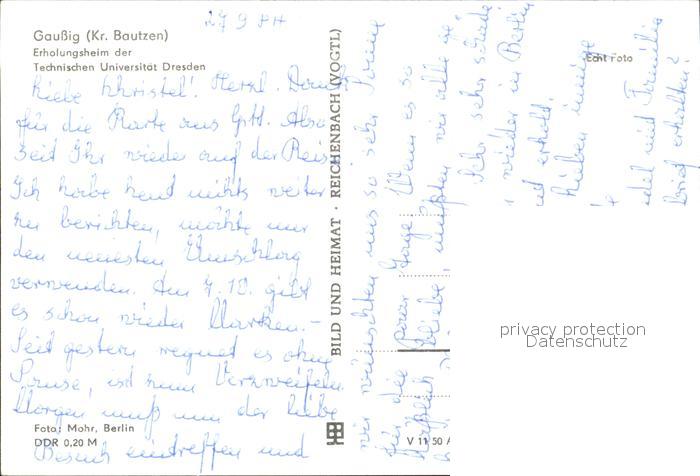 27 9 PH
Gaußig (Kr. Bautzen)
Erholungsheim der
Technischen Universität Dresden
Liebe Christel! Herzl. Dank
für die Karte aus Also
seid Ihr wieder auf der Reis
Ich habe heut nichts weiter
zu berichten, möchte nur
den neuesten Umschlag
verwenden. Am 7.10. gibt
es schon wieder Marken. –
Seit gestern regnet es ohne
Pause, ist zum Verzweifeln
Morgen muß nun der liebe
Besuch eintreffen und
Foto: Mohr, Berlin
DDR 0,20 M
BILD UND HEIMAT · REICHENBACH (VOGTL)
V 11 50 A
wir wünschten uns so sehr Sonne
für die paar Tage. Wenn es so
bliebe, müßten wir alle
Sehr sehr schade
wieder in Berlin
erhold.
lieben
und Familie
Brief erhalten?
Echt Foto
privacy protection
Datenschutz